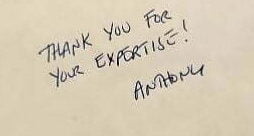 THANK YOU FOR
YOUR EXPERTISE!
ANTHONY